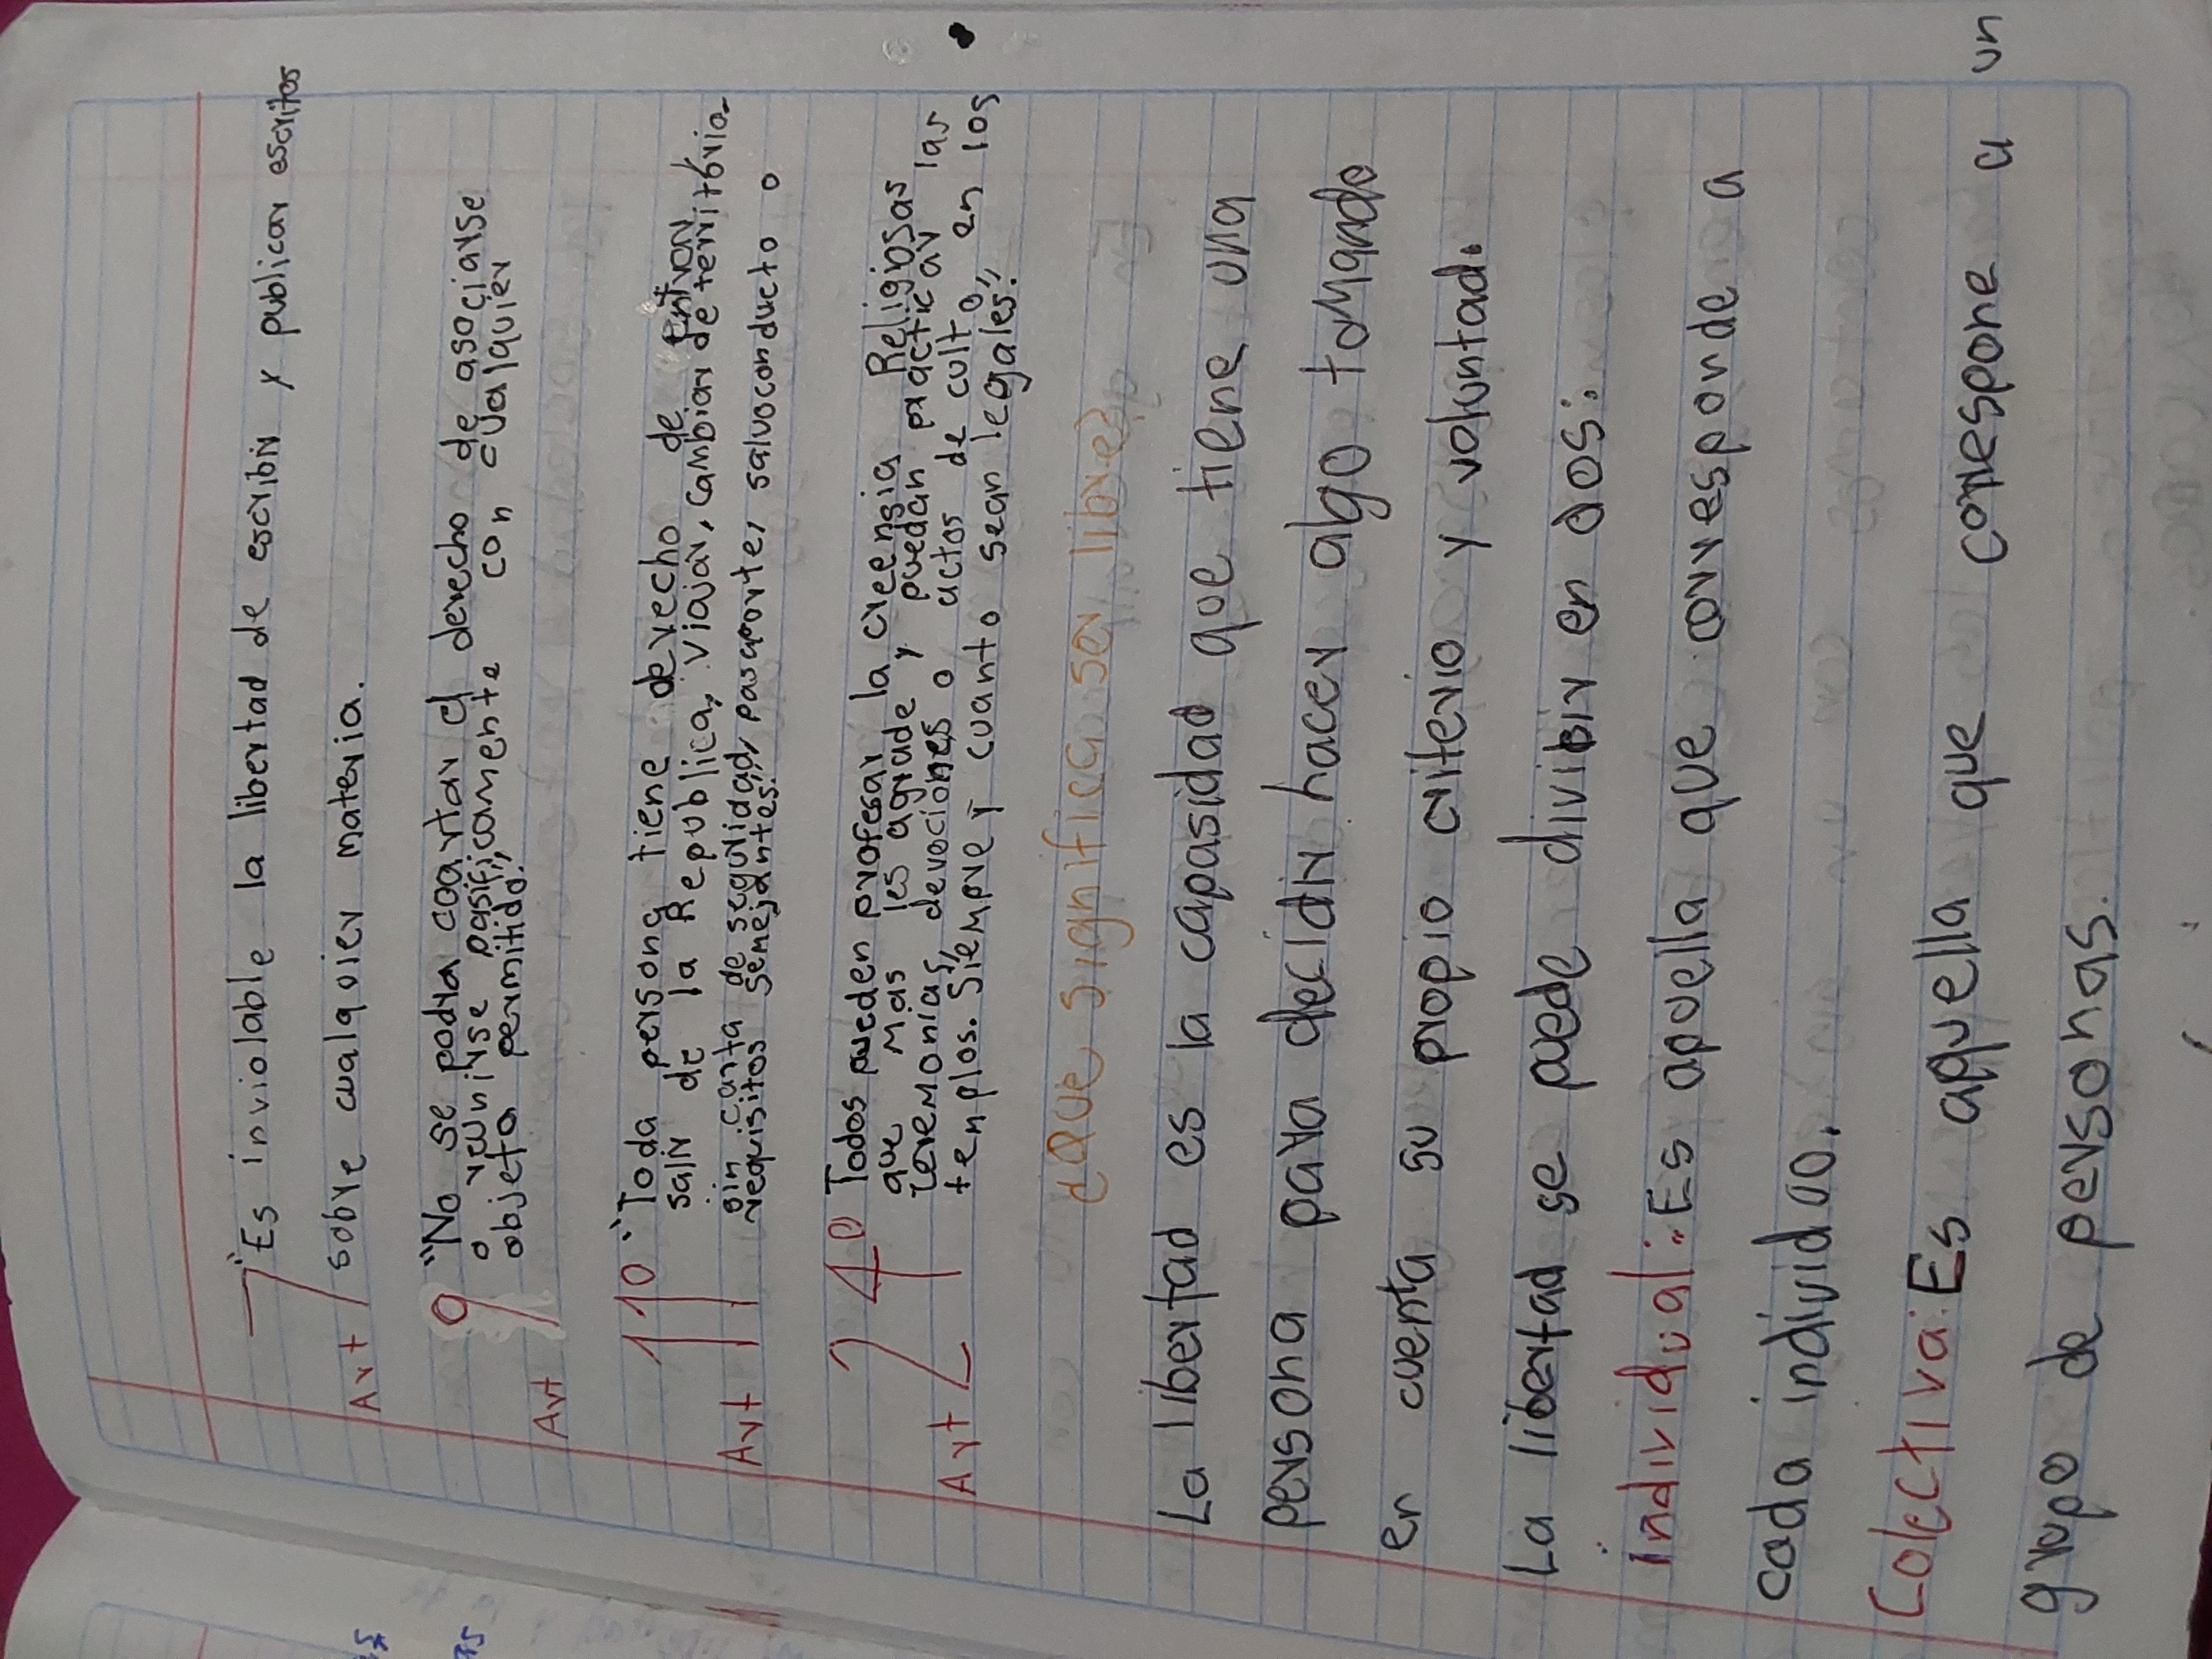 7 "Es inviolable la libertad de escribir y publicar escritos
Art sobre cualquier materia.
9 "No se podra coartar el derecho de asociarse
o reunirse pasificamente con cualquier
Art objeto permitido"
11º "Toda persona tiene derecho de entrar
salir de la Republica, viajar, cambiar de território
sin carta de seguridad, pasaporte, salvoconducto o
Art requisitos semejantes"
24º Todos pueden profesar la creensia Religiosas
que mas les agrade y puedan practicar las
ceremonias, devociones o actos de culto en los
Art templos. Siempre y cuanto sean legales."
¿Que significa ser libre?
La libertad es la capasidad que tiene una
persona para decidir hacer algo tomando
en cuenta su propio criterio y voluntad.
La libertad se puede dividir en dos:
individual: Es aquella que corresponde a
cada individuo.
Colectiva: Es aquella que correspone a un
grupo de personas.